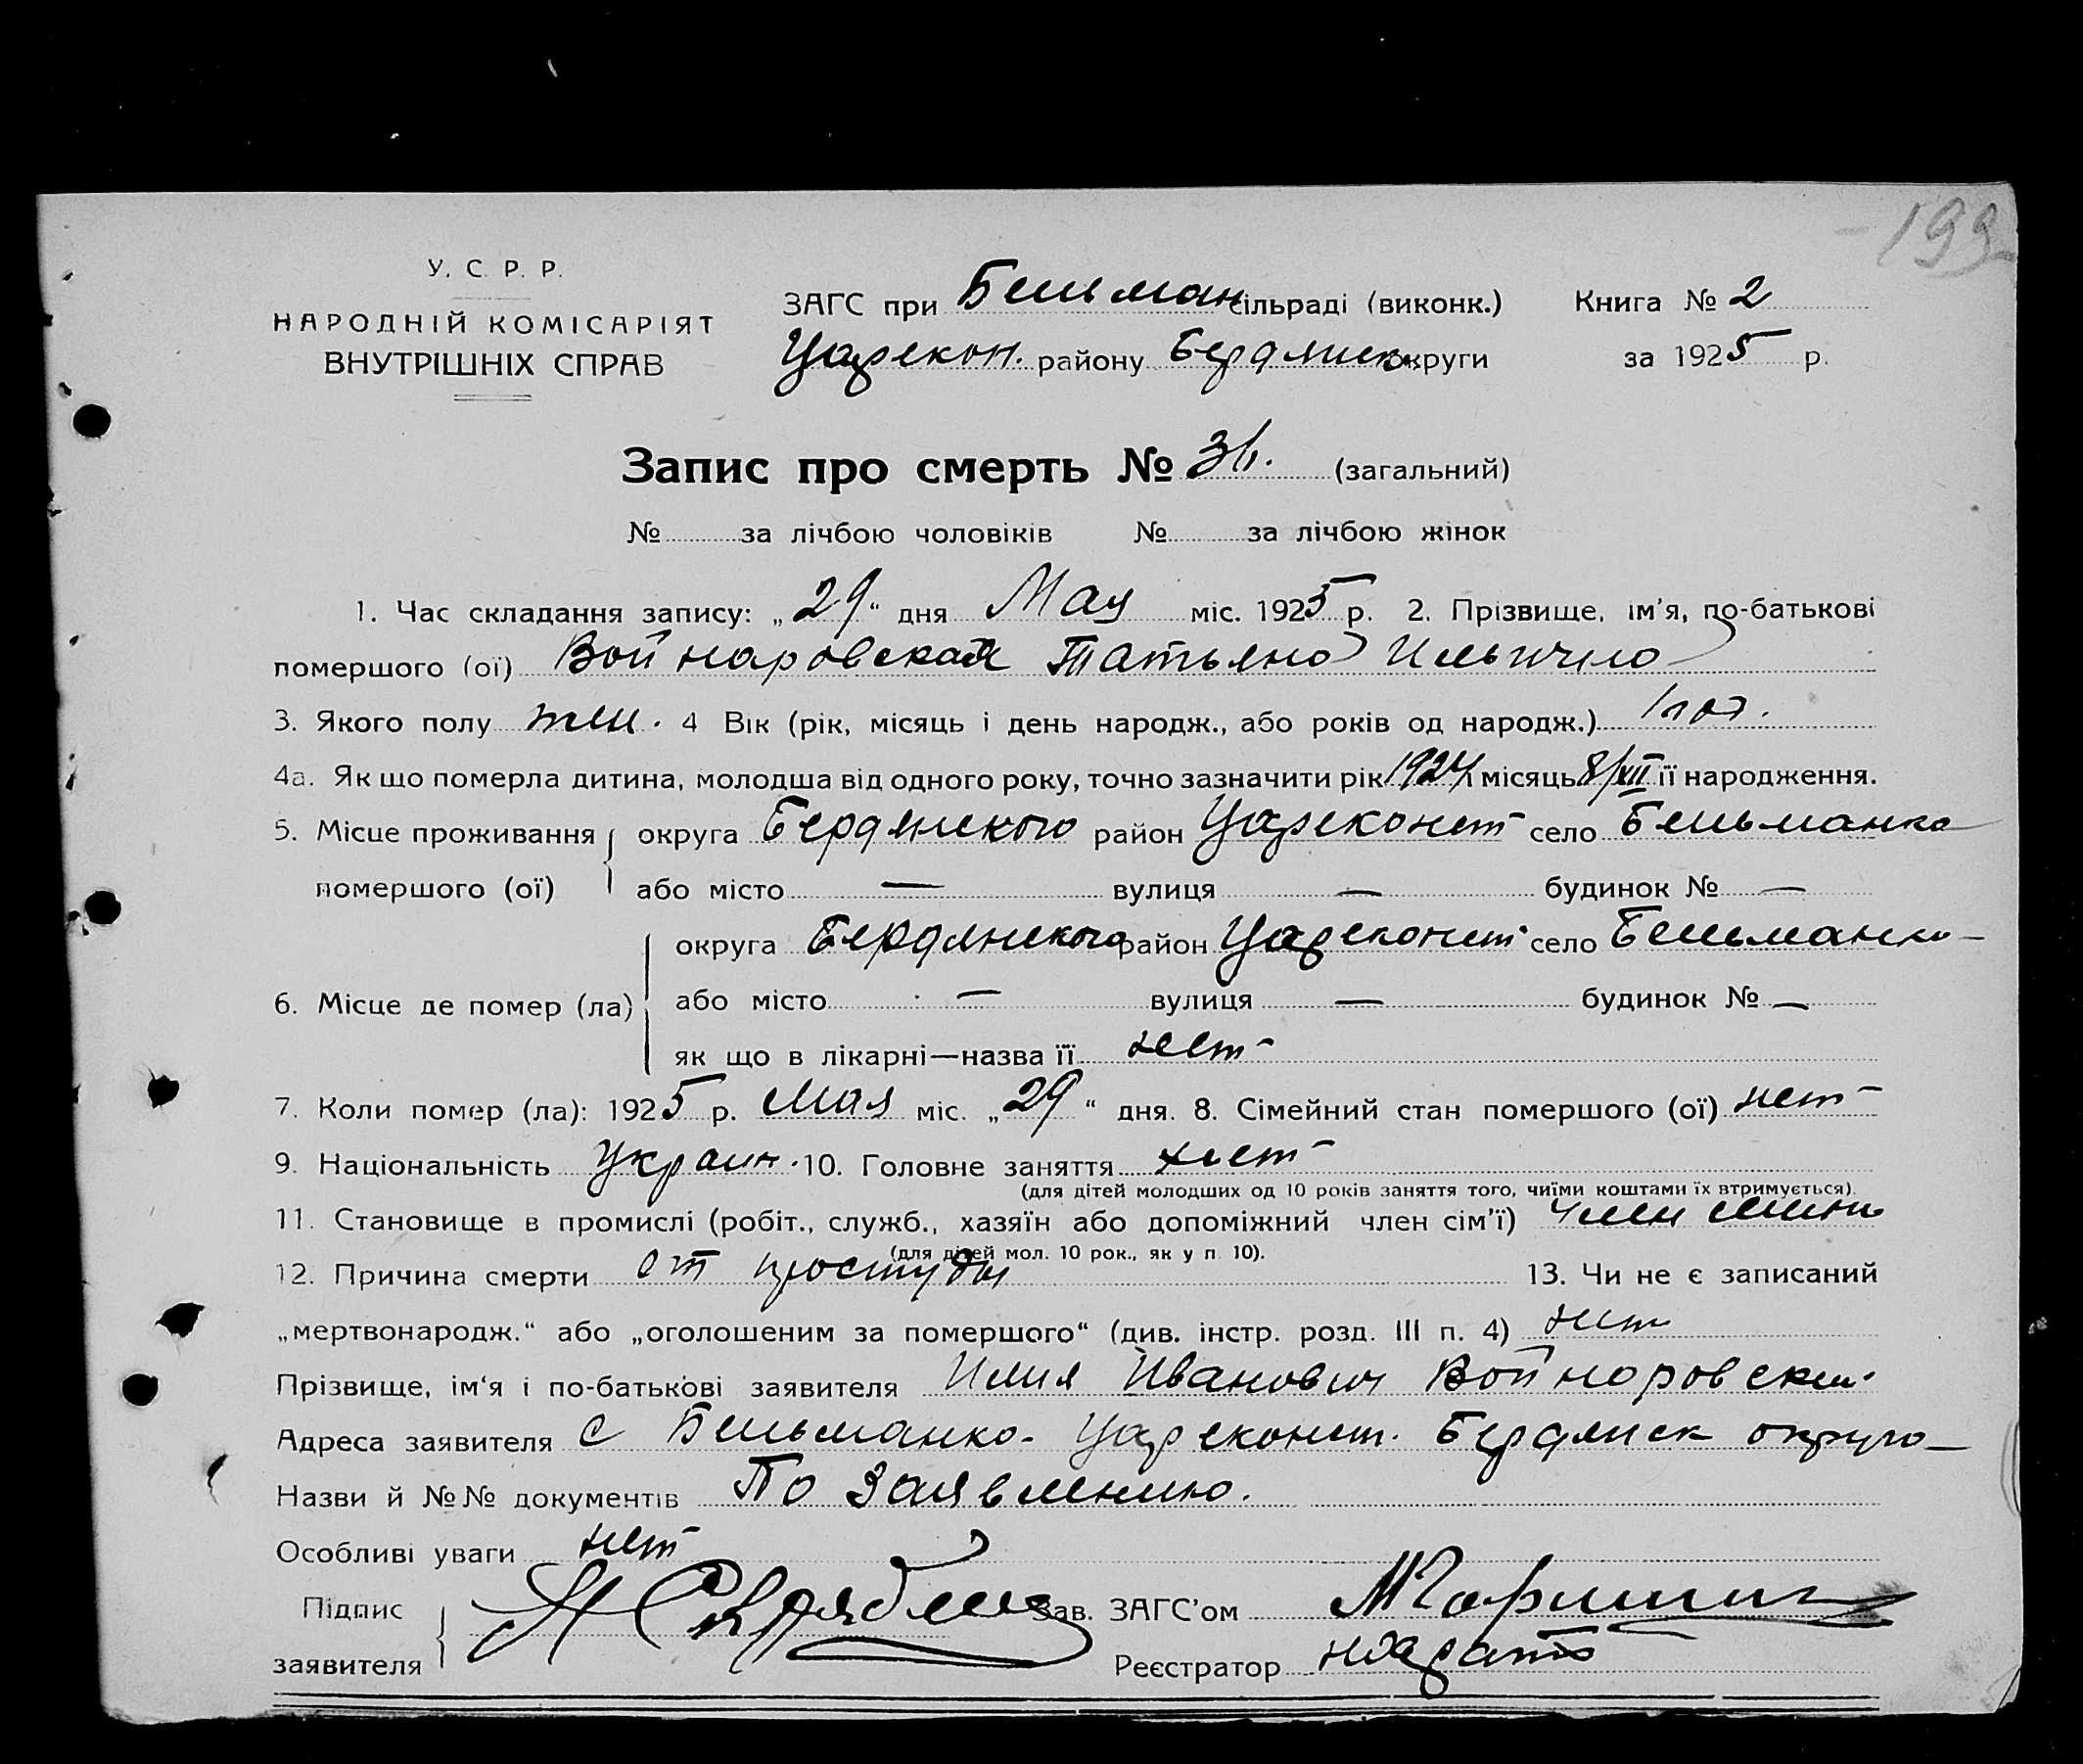 199
У. С. Р. Р.
НАРОДНІЙ КОМІСАРІЯТ
ВНУТРІШНІХ СПРАВ
ЗАГС при Бельман сільраді (виконк.) Книга № 2
Царекон. району Бердянск. округи за 1925 р.
Запис про смерть № 36. (загальний)
№ за лічбою чоловіків № за лічбою жінок
1. Час складання запису: „29“ дня Мая міс. 1925 р. 2. Прізвище, ім'я, по-батькові
помершого (ої) Войнаровская Татьяна Ильична
3. Якого полу жен. 4 Вік (рік, місяць і день народж., або років од народж.) 1 год.
4а. Як що померла дитина, молодша від одного року, точно зазначити рік 1924 місяць 8/XII її народження.
5. Місце проживання округа Бердянского район Цареконст село Бельманка
помершого (ої) або місто — вулиця — будинок № —
округа Бердянского район Цареконст село Бельманка
6. Місце де помер (ла) або місто — вулиця — будинок № —
як що в лікарні—назва її нет
7. Коли помер (ла): 1925 р. Мая міс. „29“ дня. 8. Сімейний стан помершого (ої) нет
9. Національність Украин. 10. Головне заняття нет
(для дітей молодших од 10 років заняття того, чиїми коштами їх втримується).
11. Становище в промислі (робіт., служб., хазяїн або допоміжний член сім'ї) член семьи
(для дітей мол. 10 рок., як у п 10).
12. Причина смерти от простуды 13. Чи не є записаний
„мертвонародж.“ або „оголошеним за помершого“ (див. інстр. розд. III п. 4) нет
Прізвище, ім'я і по-батькові заявителя Илия Иванович Войнаровский
Адреса заявителя с Бельманка. Цареконст. Бердянск округа
Назви й №№ документів По заявлению.
Особливі уваги нет
Підпис Зав. ЗАГС'ом
заявителя Реєстратор